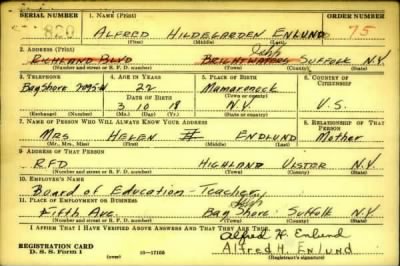 SERIAL NUMBER 1. NAME (Print) ORDER NUMBER
820 ALFRED HILDEGARDEN ENLUND 75
(First) (Middle) (Last)
2. ADDRESS (Print)
RICHLAND BLVD BRIGHTWATERS SUFFOLK N.Y.
(Number and street or R. F. D. number) (Town) (County) (State)
3. TELEPHONE 4. AGE IN YEARS 5. PLACE OF BIRTH 6. COUNTRY OF CITIZENSHIP
22 Mamaroneck
DATE OF BIRTH
BayShore 3 10 18 N.Y. U.S.
(Exchange) (Number) (Mo.) (Day) (Yr.) (State or country)
7. NAME OF PERSON WHO WILL ALWAYS KNOW YOUR ADDRESS 8. RELATIONSHIP OF THAT PERSON
MRS HELEN ENDLUND Mother
(Mr., Mrs., Miss) (First) (Middle) (Last)
9. ADDRESS OF THAT PERSON
RFD HIGHLAND ULSTER N.Y.
(Number and street or R. F. D. number) (Town) (County) (State)
10. EMPLOYER'S NAME
Board of Education - Teacher
11. PLACE OF EMPLOYMENT OR BUSINESS
Fifth Ave. Bay Shore Suffolk N.Y.
(Number and street or R. F. D. number) (Town) (County) (State)
I AFFIRM THAT I HAVE VERIFIED ABOVE ANSWERS AND THAT THEY ARE TRUE.
Alfred H. Enlund
REGISTRATION CARD Alfred H. Enlund
D. S. S. Form 1 (over) 16—17105 (Registrant's signature)